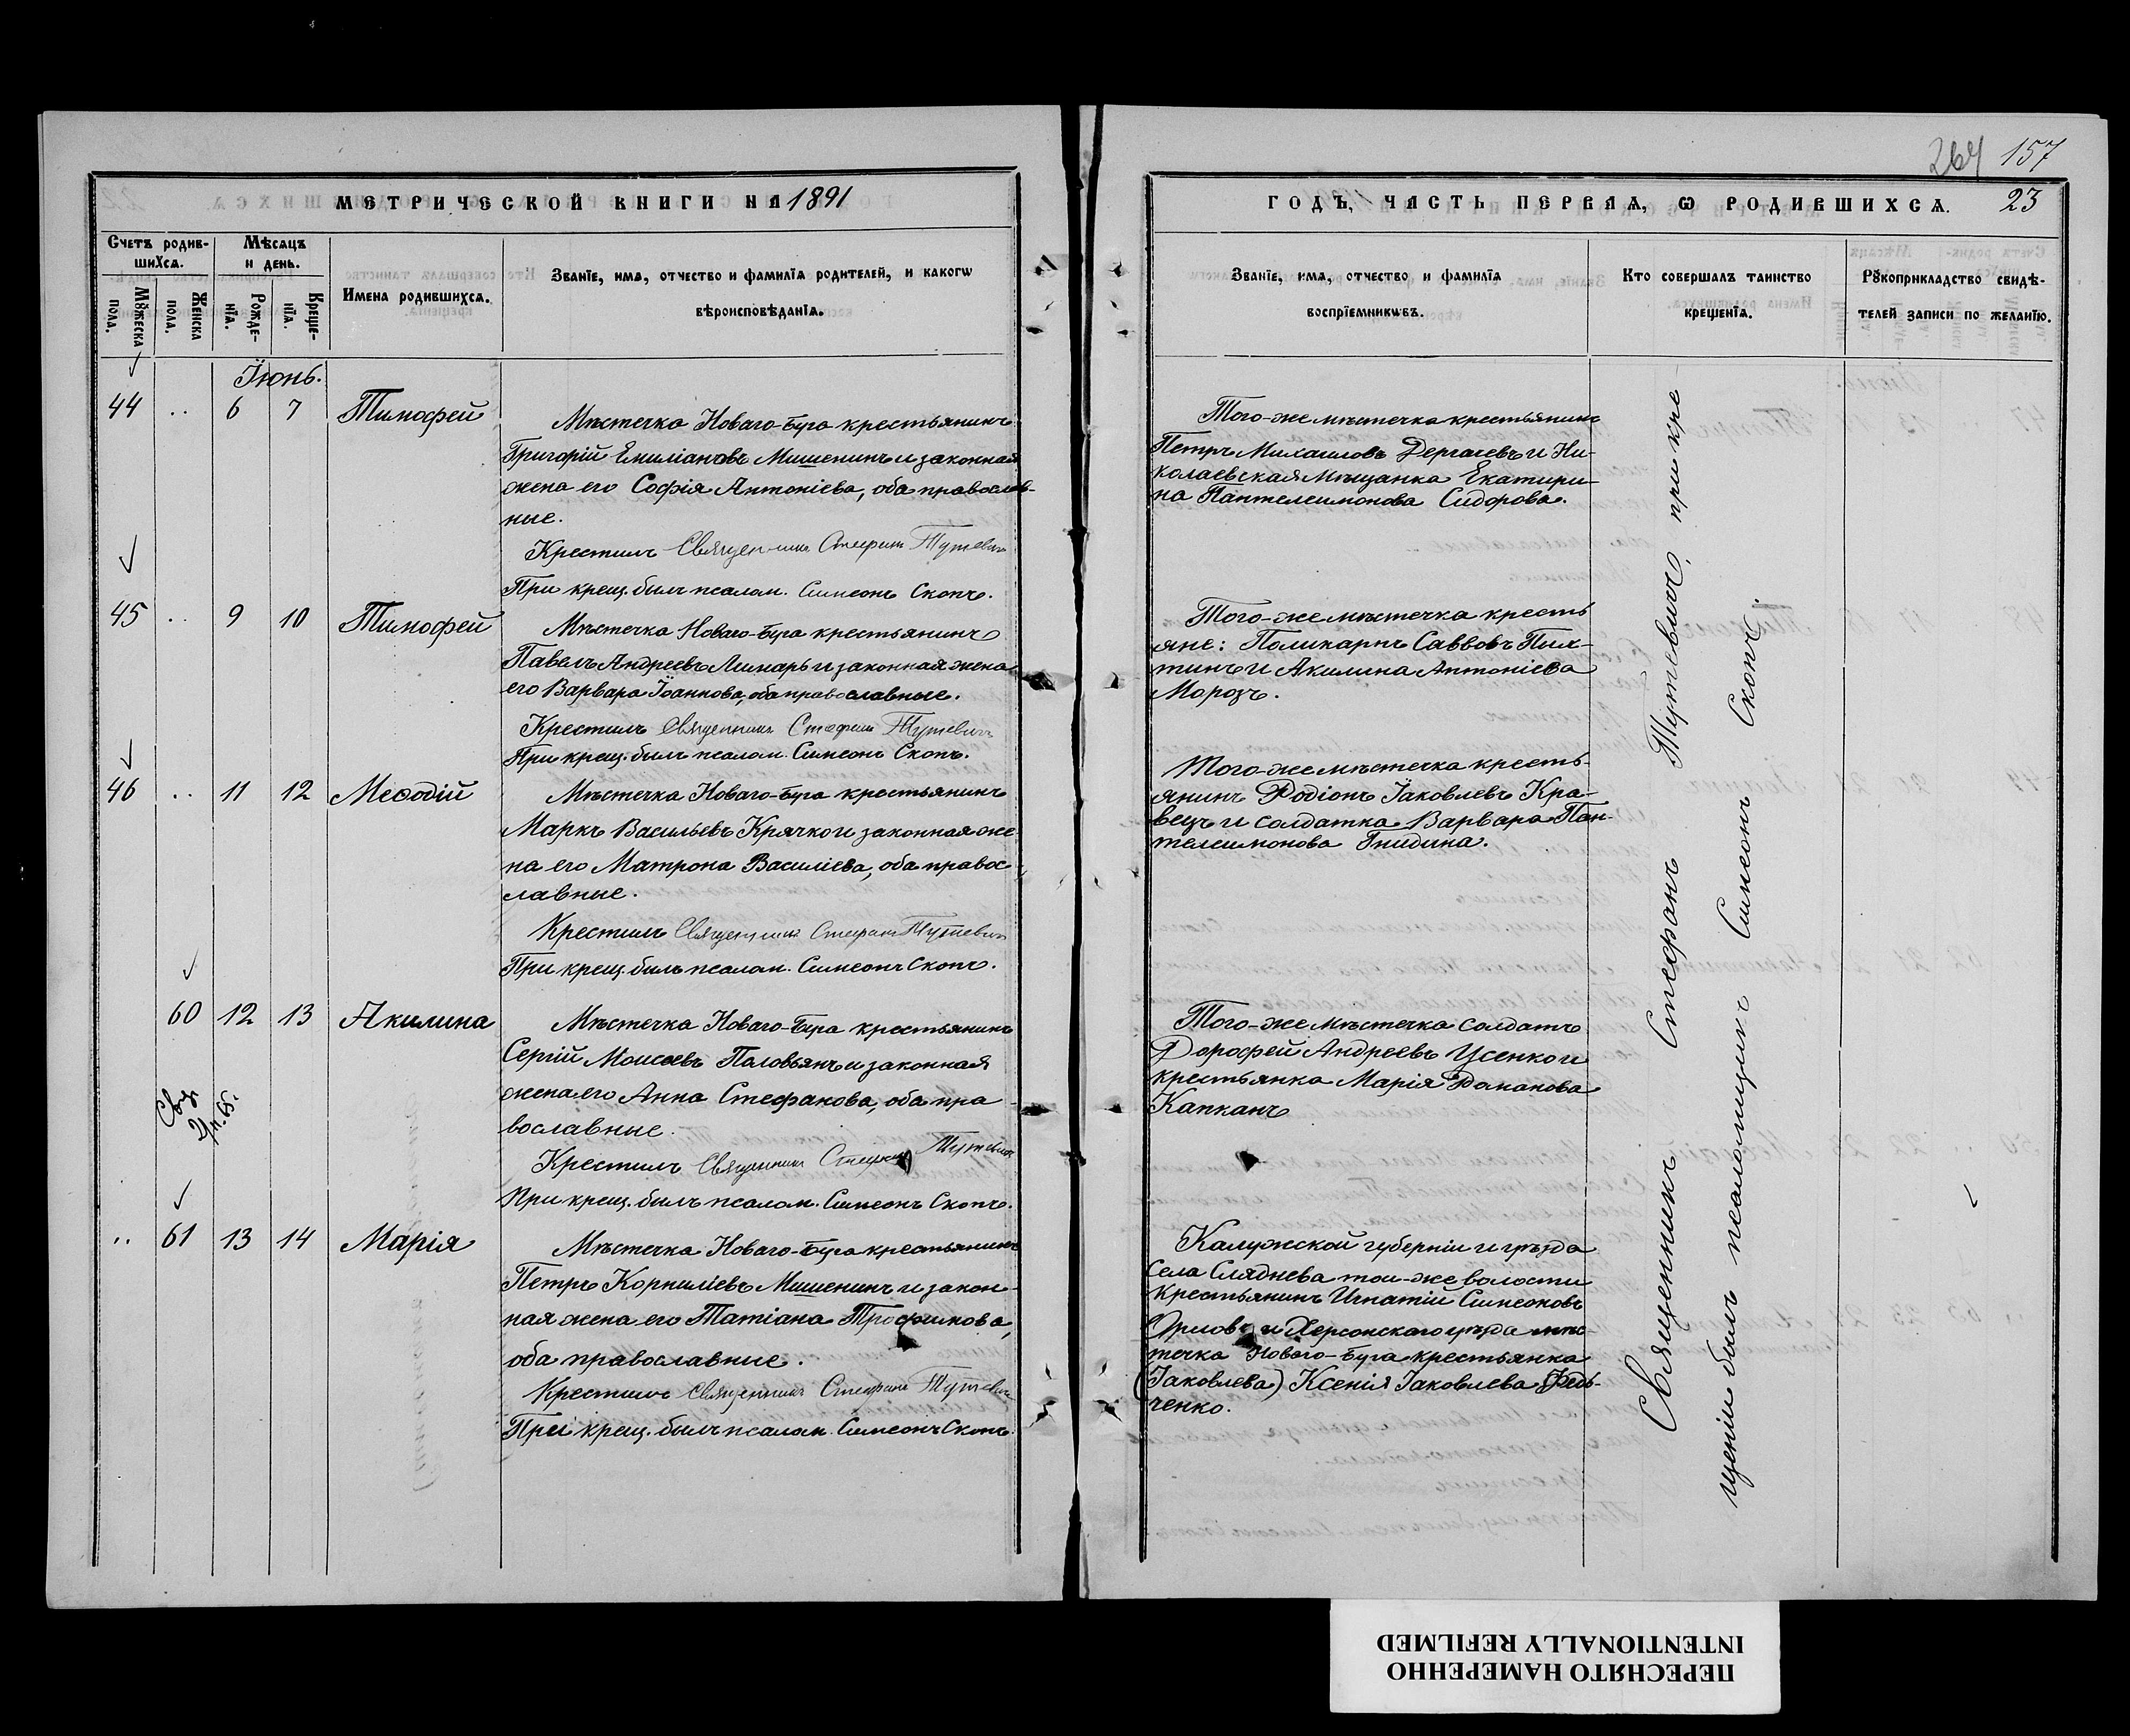 264 157
МЕТРИЧЕСКОЙ КНИГИ НА 1891
ГОДЪ, ЧАСТЬ ПЕРВАЯ, Ѡ РОДИВШИХСѦ. 23
Счетъ родив-
шихсѧ.
Мѣсѧцъ
и день.
Мꙋжеска
пола.
Женска
пола.
Рожде-
нїѧ.
Креще-
нїѧ.
Имена родившихсѧ.
Званїе, имѧ, отчество и фамилїѧ родителей, и какогѡ
вѣроисповѣданїѧ.
Званїе, имѧ, отчество и фамилїѧ
воспрїемникѡвъ.
Кто совершалъ таинство
крещенїѧ.
Рꙋкоприкладство свидѣ-
телей записи по желанїю.
Їюнь.
44 .. 6 7 Тимофей
Мѣстечка Новаго-Буга крестьянинъ
Григорій Емиліановъ Мишенинъ и законная
жена его Софія Антоніева, оба православ-
ные.
Крестилъ Священникъ Стефанъ Тутевичъ
При крещ. былъ псалом. Симеонъ Скопъ.
Того-же мѣстечка крестьянинъ
Петръ Михаиловъ Дергачевъ и Ни-
колаевская мѣщанка Екатири-
на Пантелеимонова Сидорова.
45 .. 9 10 Тимофей
Мѣстечка Новаго-Буга крестьянинъ
Павелъ Андреевъ Лимарь и законная жена
его Варвара Їоаннова, оба православные.
Крестилъ Священникъ Стефанъ Тутевичъ
При крещ. былъ псалом. Симеонъ Скопъ.
Того-же мѣстечка кресть
яне: Поликарпъ Саввовъ Пых-
тинъ и Акилина Антоніева
Морозъ.
46 .. 11 12 Меѳодій
Мѣстечка Новаго-Буга крестьянинъ
Маркъ Васильевъ Крячко и законная же
на его Матрона Василіева, оба правос
лавные.
Крестилъ Священникъ Стефанъ Тутевичъ
При крещ. былъ псалом. Симеонъ Скопъ.
Того-же мѣстечка кресть-
янинъ Родіонъ Їаковлевъ Кра-
вецъ и солдатка Варвара Пан-
телеимонова Гнидина.
60 12 13 Акилина
Мѣстечка Новаго-Буга крестьянинъ
Сергій Моисеевъ Половьянъ и законная
жена его Анна Стефанова, оба пра-
вославные.
Крестилъ Священникъ Стефанъ Тутевичъ
При крещ. былъ псалом. Симеонъ Скопъ.
Того-же мѣстечка солдатъ
Дорофей Андреевъ Усенко и
крестьянка Марія Романова
Капканъ
.. 61 13 14 Марія
Мѣстечка Новаго-Буга крестьянинъ
Петръ Корниліевъ Мишенинъ и закон-
ная жена его Татіана Трофимова,
оба православные.
Крестилъ Священникъ Стефанъ Тутевичъ
При крещ. былъ псалом. Симеонъ Скопъ.
Калужской губерніи и уѣзда
села Сляднева той-же волости
крестьянинъ Игнатій Симеоновъ
Орловъ и Херсонскаго уѣзда мѣс-
течка Новаго-Буга крестьянка
(Іаковлева) Ксенія Іаковлева
ченко.
Священникъ Стефанъ Тутевичъ, при кре
щеніи былъ псаломщикъ Симеонъ Скопъ.
ПЕРЕСНЯТО НАМЕРЕННО
INTENTIONALLY REFILMED